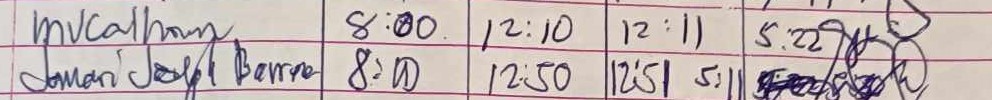 mvCalhoun 8:00 12:10 12:11 5.22
Jomari Joseph 8:00 12:50 12:51 5:11